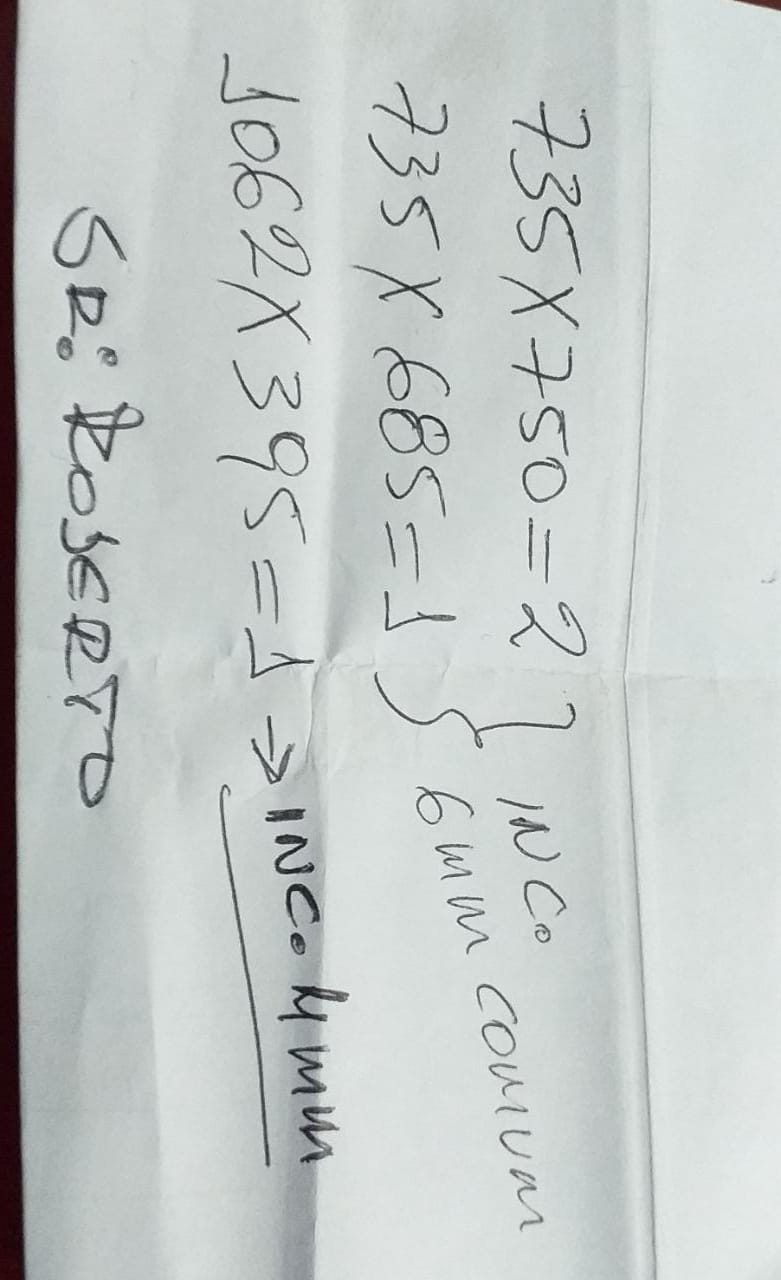 735X750=2 } INCo
735X685=1 } 6mm comum
1062X395=1 → INCo 4mm
SR: ROBERTO